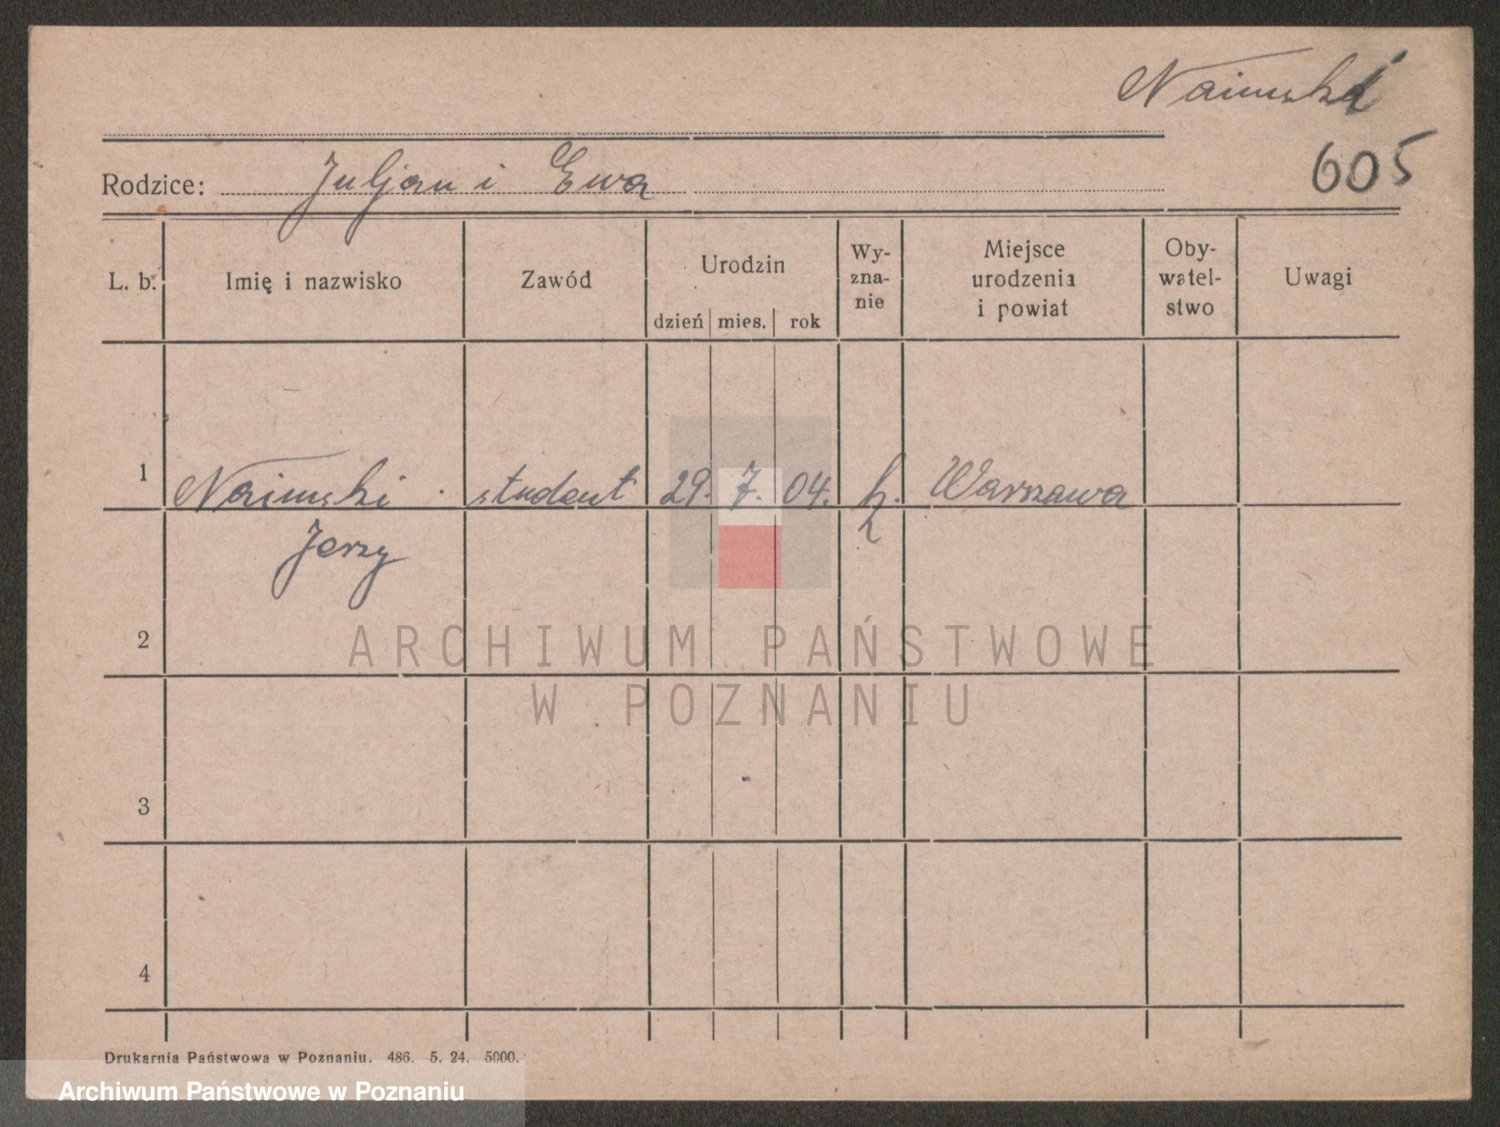 Naimski
605
Rodzice: Juljan i Ewa
L. b. Imię i nazwisko Zawód Urodzin dzień mies. rok Wy-zna-nie Miejsce urodzenia i powiat Oby-watel-stwo Uwagi
1 Naimski student 29. 7. 04. k. Warszawa
Jerzy
2
ARCHIWUM PAŃSTWOWE
W POZNANIU
3
4
Drukarnia Państwowa w Poznaniu. 486. 5. 24. 5000.
Archiwum Państwowe w Poznaniu